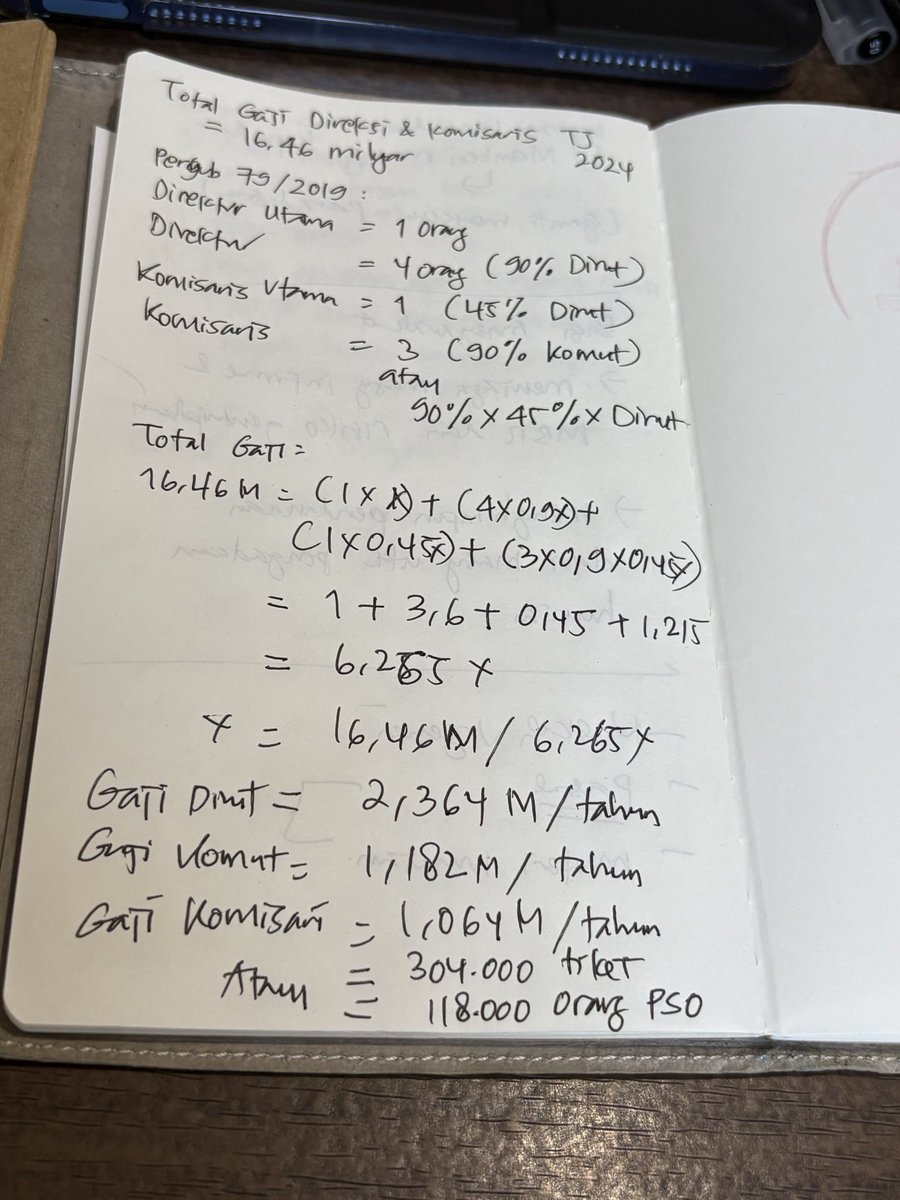 Total Gaji Direksi & Komisaris TJ
= 16,46 milyar 2024
Pergub 79/2019 :
Direktur Utama = 1 orang
Direktur = 4 orang (90% Dirut)
Komisaris Utama = 1 (45% Dirut)
Komisaris = 3 (90% Komut)
atau
90% × 45% × Dirut
Total Gaji =
16,46 M = (1 × x) + (4×0,9x) +
(1×0,45x) + (3×0,9×0,45x)
= 1 + 3,6 + 0,45 + 1,215
= 6,265 x
x = 16,46 M / 6,265x
Gaji Dirut = 2,364 M / tahun
Gaji Komut = 1,182 M / tahun
Gaji Komisari = 1,064 M / tahun
Atau = 304.000 tiket
= 118.000 orang PSO